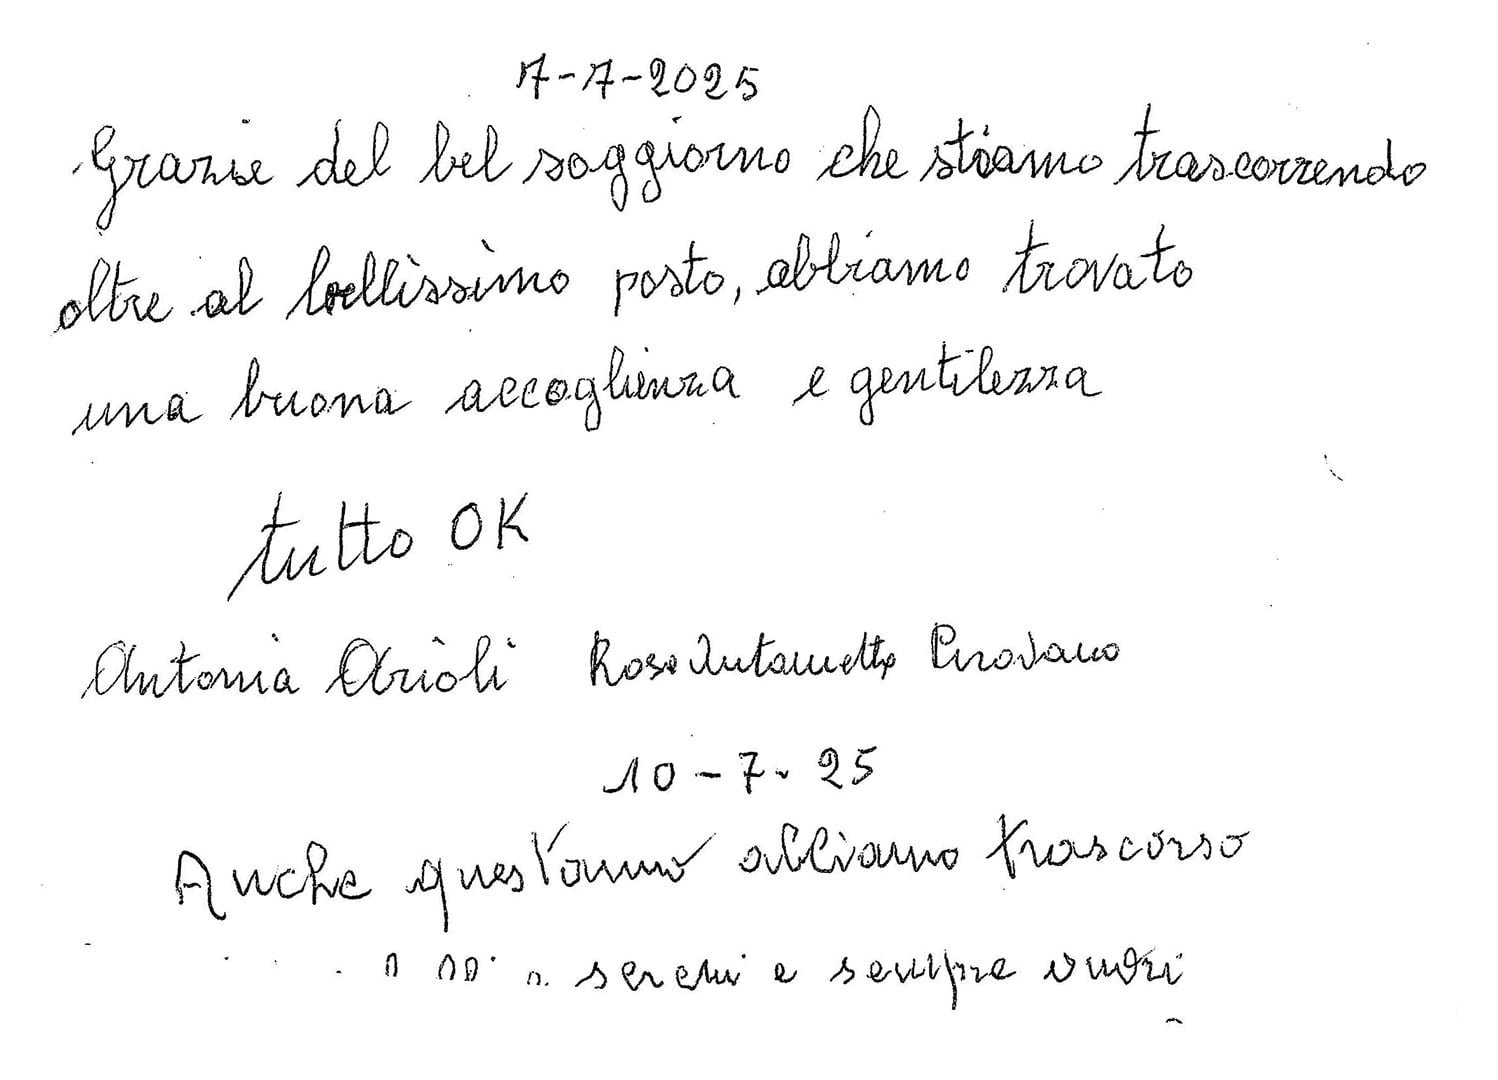 7-7-2025
Grazie del bel soggiorno che stiamo trascorrendo
oltre al bellissimo posto, abbiamo trovato
una buona accoglienza e gentilezza
tutto OK
Antonia Arioli Rosa Antonietta Pirovano
10-7-25
Anche quest'anno abbiamo trascorso
sereni e sempre